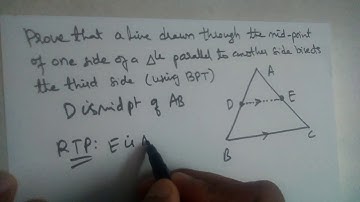 Prove that a line drawn through the mid-point
of one side of a Δle parallel to another side bisects
the third side (using BPT)
D is midpt of AB
RTP: E is A
A
D
E
B
C